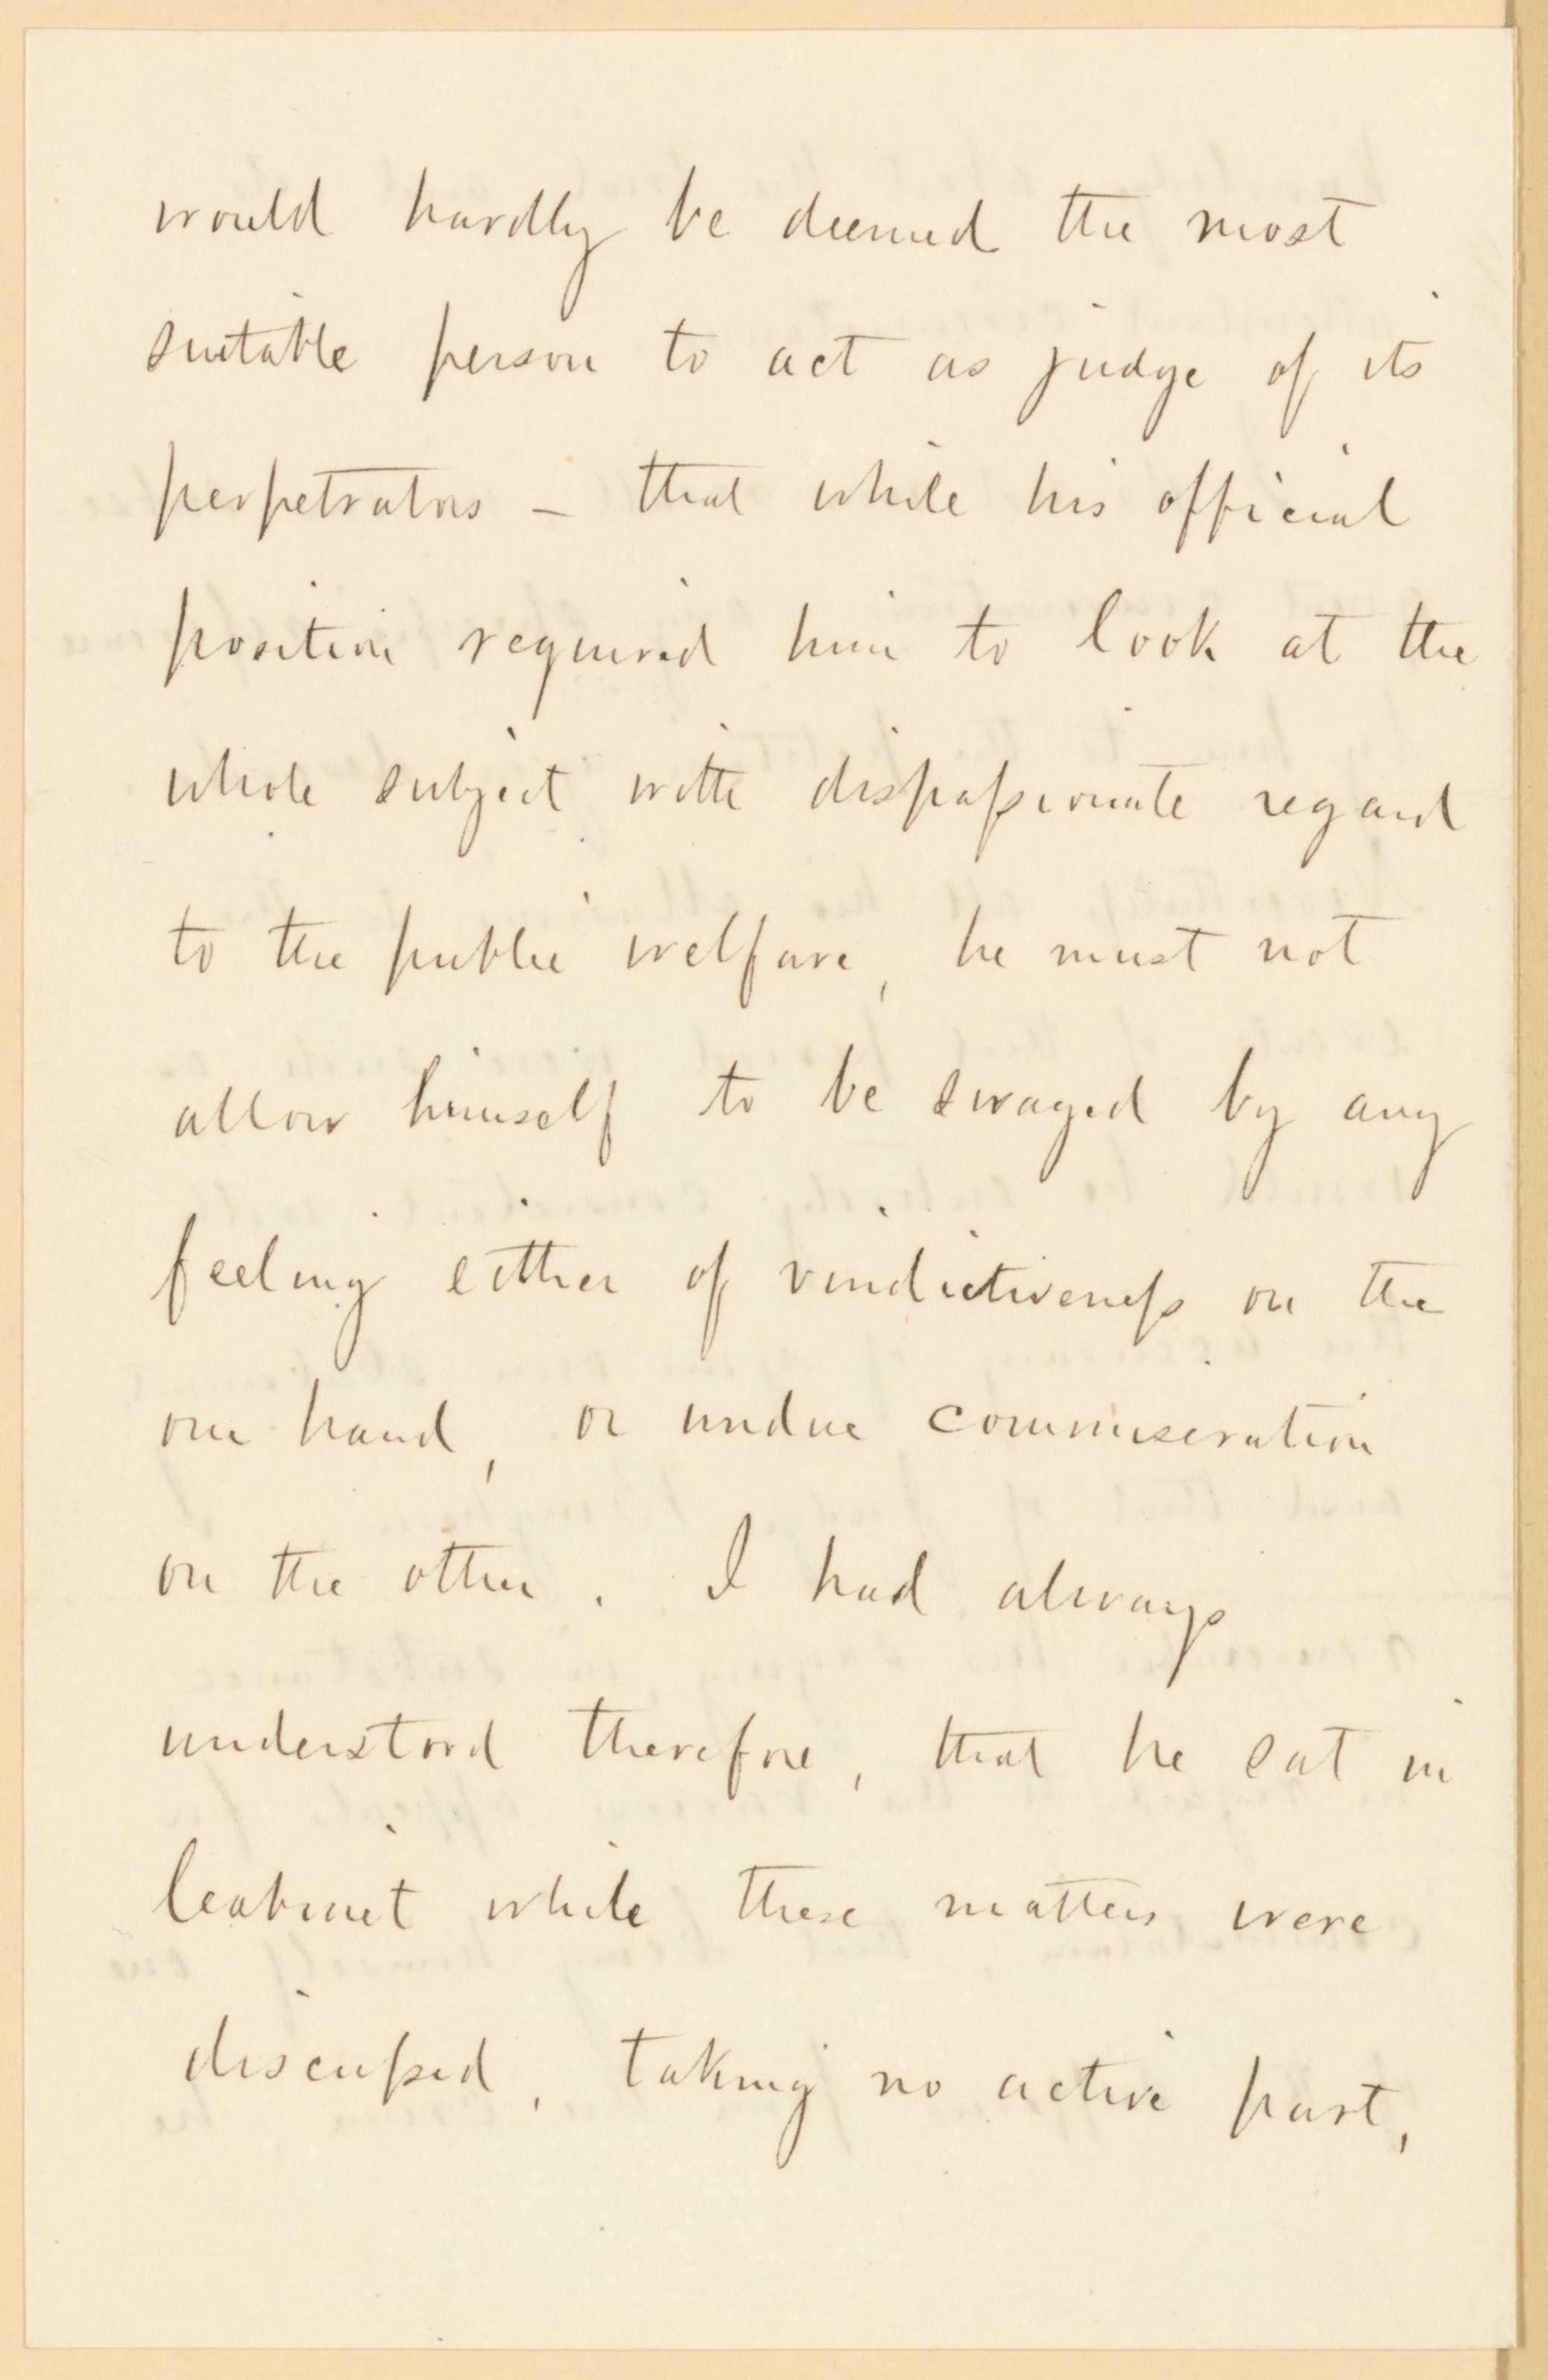 would hardly be deemed the most
suitable person to act as judge of its
perpetrators – that while his official
position required him to look at the
whole subject with dispassionate regard
to the public welfare, he must not
allow himself to be swayed by any
feeling either of vindictiveness on the
one hand, or undue commiseration
on the other. I had always
understood therefore, that he sat in
Cabinet while these matters were
discussed, taking no active part,